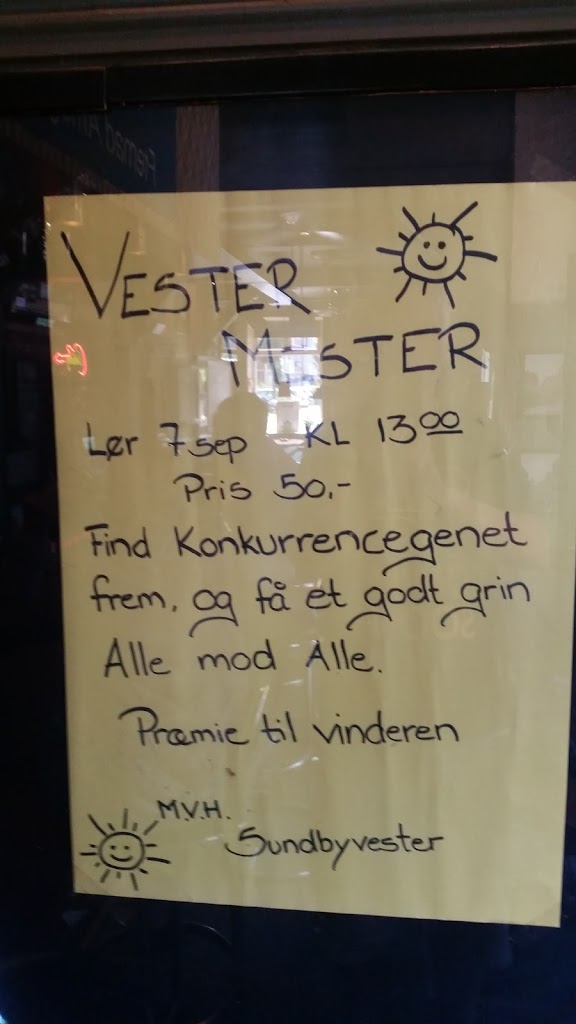 VESTER
MESTER
Lør 7 sep KL 13 00
Pris 50,-
Find Konkurrencegenet
frem, og få et godt grin
Alle mod Alle.
Præmie til vinderen
M.V.H.
Sundbyvester